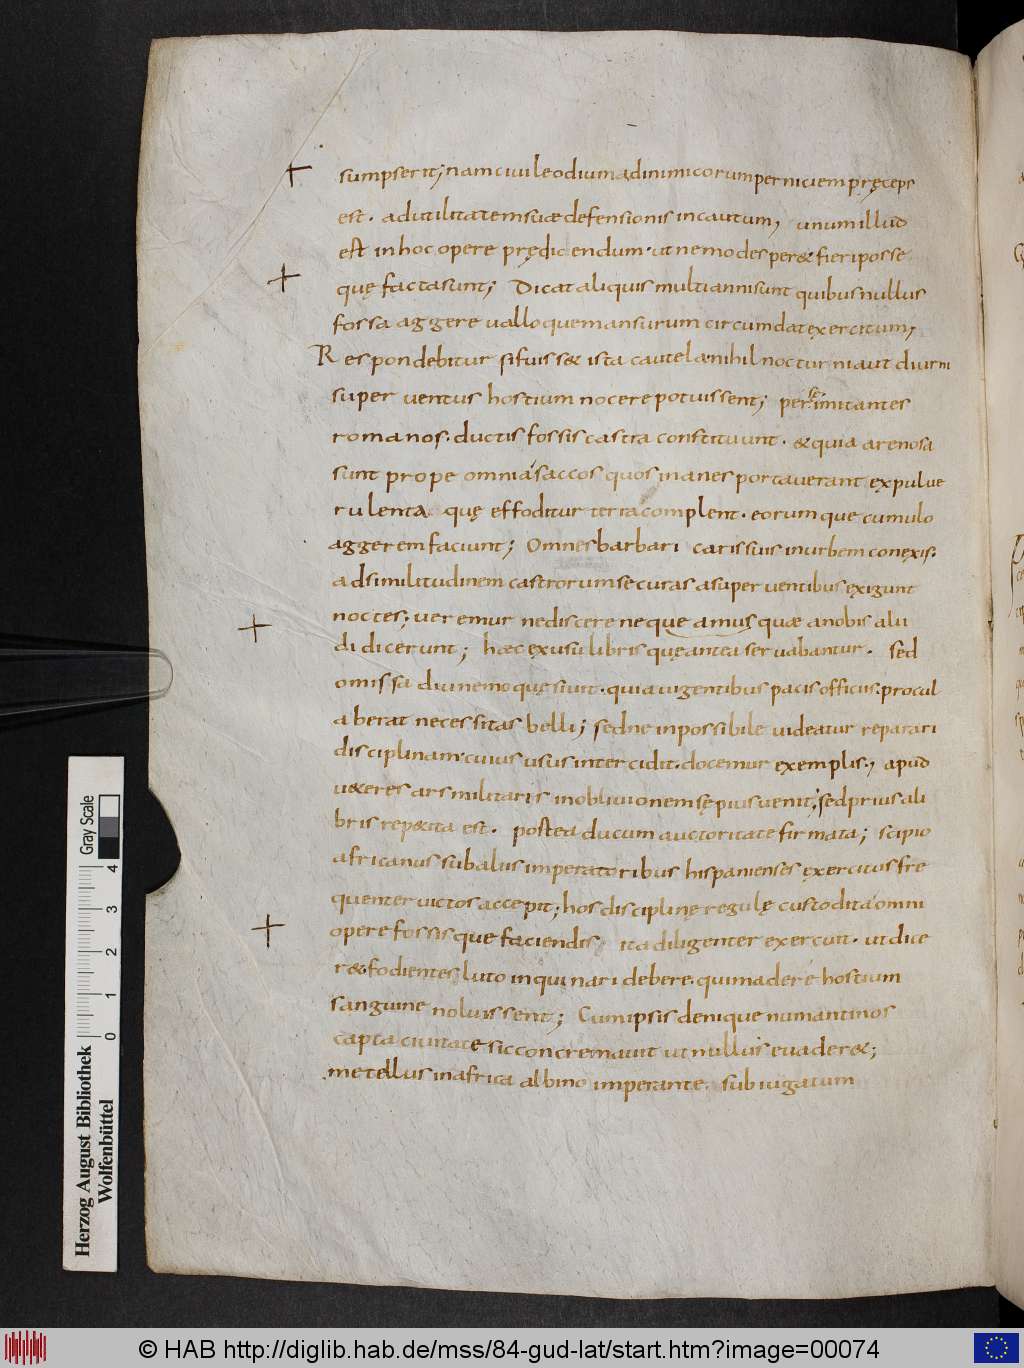 sumpserit; nam ciuile odium ad inimicorum perniciem pręceps
est. ad utilitatem suae defensionis incautum, unum illud
est in hoc opere prędicendum. ut nemo desper& fieri posse
quę facta sunt; Dicat aliquis multi anni sunt quibus nullus
fossa aggere uallo que mansurum circumdat exercitum,
Respondebitur si fuiss& ista cautela. nihil nocturni aut diurni
superuentus hostium nocere potuissent; persę imitantes
romanos. ductis fossis castra constituunt. & quia arenosa
sunt prope omnia saccos quos inanes portauerant ex pulue
rulenta quę effoditur terra complent. eorumque cumulo
aggerem faciunt; Omnes barbari carris suis in urbem conexis.
ad similitudinem castrorum securas a superuentibus exigunt
noctes; ueremur ne discere nequeamus quae a nobis alii
didicerunt; haec ex usu libris quę antea seruabantur. sed
omissa diu nemo quęsiuit. quia uigentibus pacis officiis. procul
aberat necessitas belli; sed ne inpossibile uideatur reparari
disciplinam. cuius usus intercidit. docemur exemplis; apud
u&eres ars militaris in obliuionem sępius uenit; sed prius a li
bris rep&ita est. postea ducum auctoritate firmata; scipio
africanus sub aliis imperatoribus hispanienses exercitus fre
quenter uictos accepit; hos disciplinę regulę custodita omni
opere fossisque faciendis, ita diligenter exercuit. ut dice
r& fodientes luto inquinari debere. qui madere hostium
sanguine noluissent; Cum ipsis denique numantinos
capta ciuitate sic concremauit ut nullus euader&;
metellus in africa albino imperante. subiugatum
Gray Scale
0 1 2 3 4
Herzog August Bibliothek
Wolfenbüttel
© HAB http://diglib.hab.de/mss/84-gud-lat/start.htm?image=00074